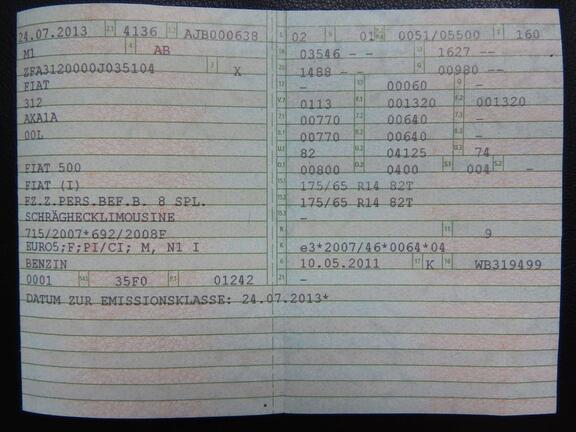 24.07.2013 4136 AJB000638
M1 AB
ZFA3120000J035104 X
FIAT
312
AXA1A
00L
FIAT 500
FIAT (I)
FZ.Z.PERS.BEF.B. 8 SPL.
SCHRÄGHECKLIMOUSINE
715/2007*692/2008F
EURO5;F;PI/CI; M, N1 I
BENZIN
0001 35F0 01242
DATUM ZUR EMISSIONSKLASSE: 24.07.2013*
02 01 0051/05500 160
03546 - - 1627 --
1488 - - 00980 --
- 00060 -
0113 001320 001320
00770 00640 -
00770 00640 -
82 04125 74
00800 0400 004 -
175/65 R14 82T
175/65 R14 82T
-
- 9
e3*2007/46*0064*04
10.05.2011 K WB319499
-